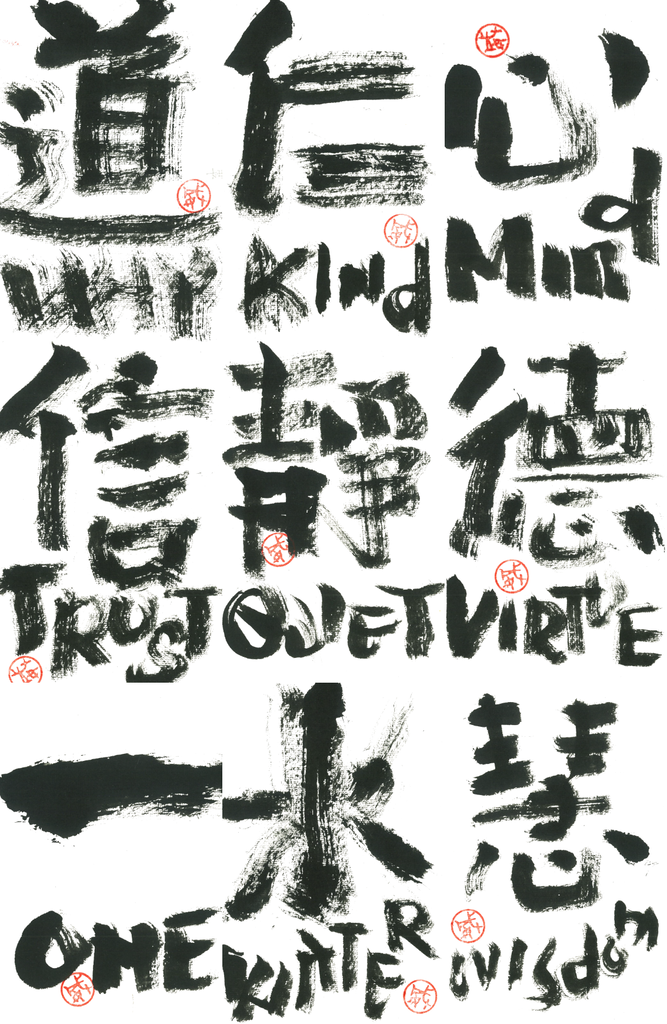 道 仁 心
WHY KINd MINd
信 靜 德
TRUST QUIET VIRTUE
一 水 慧
ONE WATER WISdOM